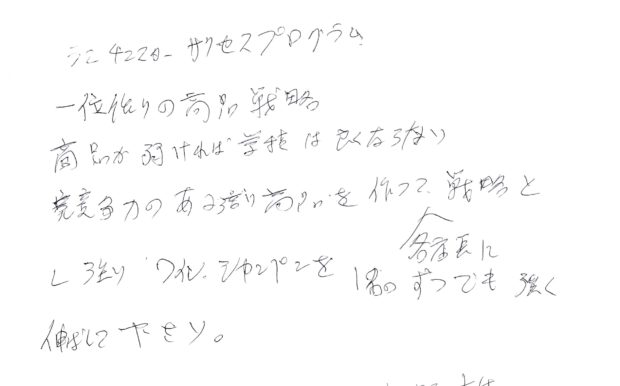 シニ マスター サクセスプログラム
一位作りの商品戦略
商品が弱ければ業績は良くならない
競争力のある強い商品を作って、戦略と
各店長に
し 強い ワイン、シャンパンを 1品ずつでも強く
伸ばして下さい。